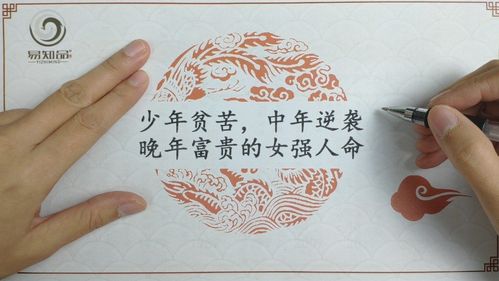 易知命
YIZHIMING
少年贫苦，中年逆袭
晚年富贵的女强人命